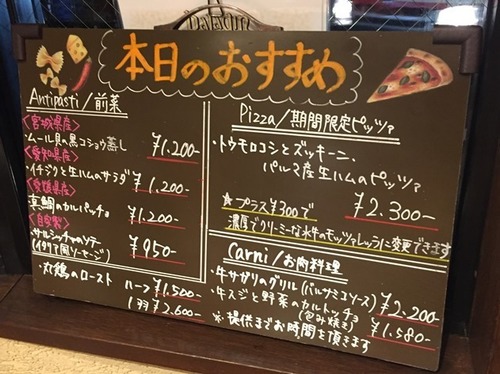 本日のおすすめ
Antipasti/前菜
<宮城県産>
・ムール貝の黒コショウ蒸し
¥1.200-
<愛知県産>
・イチジクと生ハムのサラダ
¥1.200-
<愛媛県産>
真鯛のカルパッチョ
¥1.200-
<自家製>
・サルシッチャのソテー
(イタリア風ソーセージ)
¥950-
・丸鶏のロースト ハーフ¥1.500-
1羽¥2.600-
Pizza/期間限定ピッツァ
・トウモロコシとズッキーニ、
パルマ産生ハムのピッツァ
¥2.300-
★プラス¥300で
濃厚でクリーミーな水牛のモッツァレッラに変更できます
Carni/お肉料理
・牛サガリのグリル(バルサミコソース)¥2,200-
・牛スジと野菜のカルトッチョ
(包み焼き) ¥1.580-
※提供までお時間を頂きます